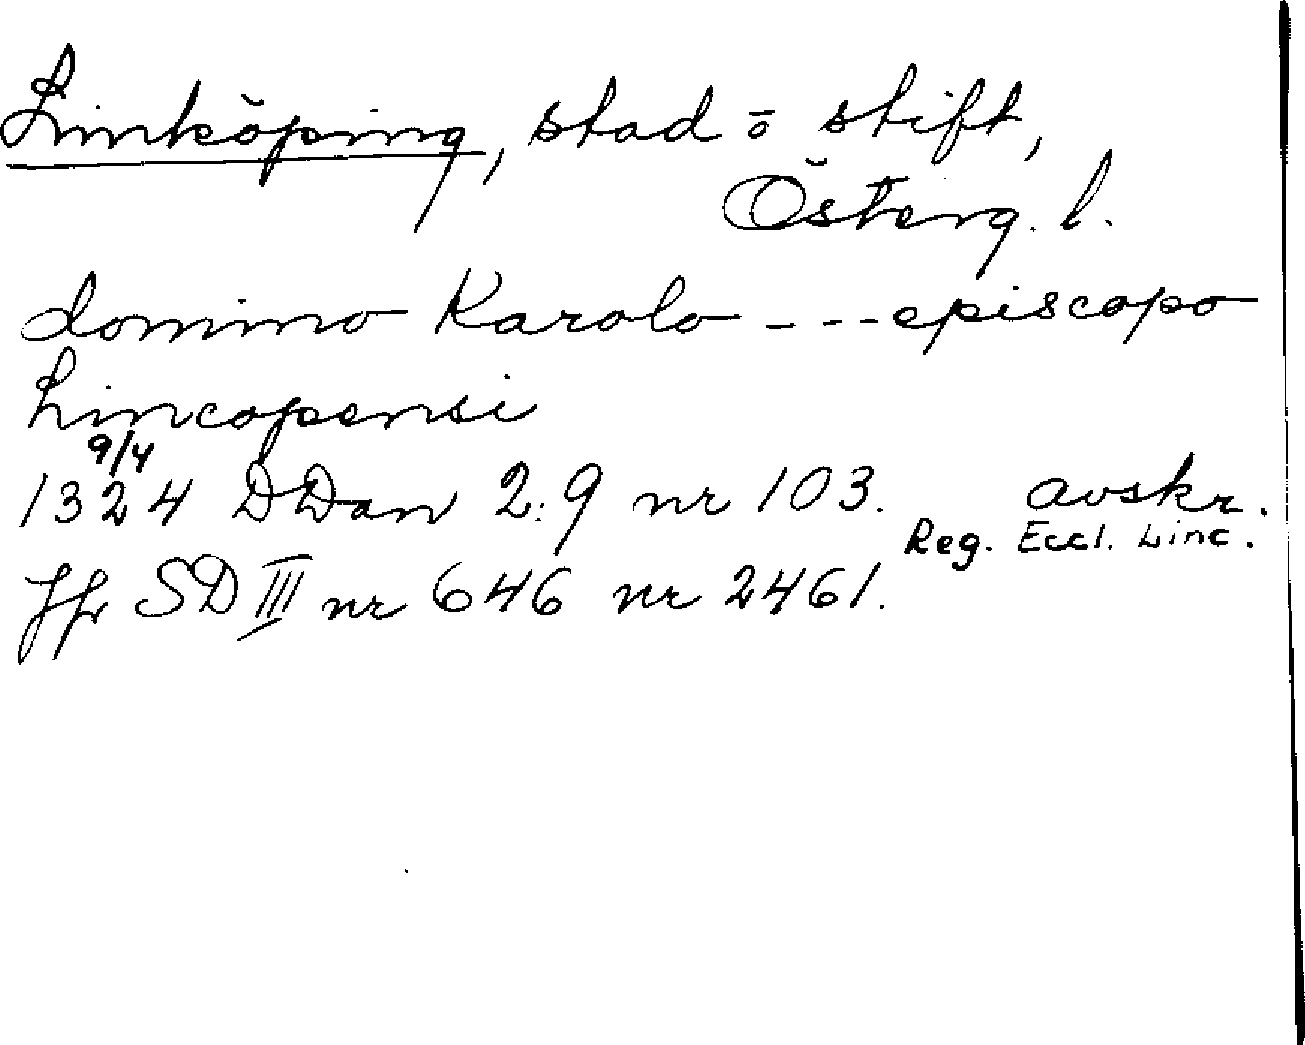 Linköping, stad ō stift,
Österg. l.
domino Karolo - - - episcopo
Lincopensi
9/4
1324 DDan 2:9 nr 103. avskr.
Reg. Eccl. Linc.
Jfr SD III nr 646 nr 2461.